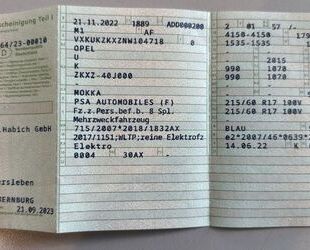 scheinigung Teil I
64/23-00010
Habich GmbH
ersleben
BERNBURG
21.09.2023
21.11.2022 1889 ADD000200
M1 AF
VXKUKZKXZNW104718 0
OPEL
U
K
ZKXZ-40J000
MOKKA
PSA AUTOMOBILES (F)
Fz.z.Pers.bef.b. 8 Spl.
Mehrzweckfahrzeug
715/2007*2018/1832AX
2017/1151;WLTP;reine Elektrofz
Elektro
0004 30AX -
2 01 57 /-
4150-4150 179
1535-1535
2015
990 1070
990 1070
215/60 R17 100V
215/60 R17 100V
BLAU
e2*2007/46*0639*
14.06.22 K